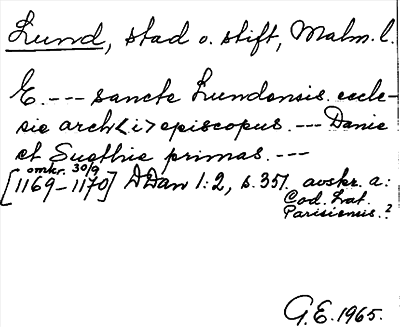 Lund, stad o. stift, Malm. l.
E. --- sancte Lundensis eccle-
sie arch<i>episcopus. --- Danie
et Suethie primas. ---
omkr. 30/9
[1169-1170] DDan 1:2, s. 351. avskr. a:
Cod. Lat.
Parisiensis.?
G.E. 1965.